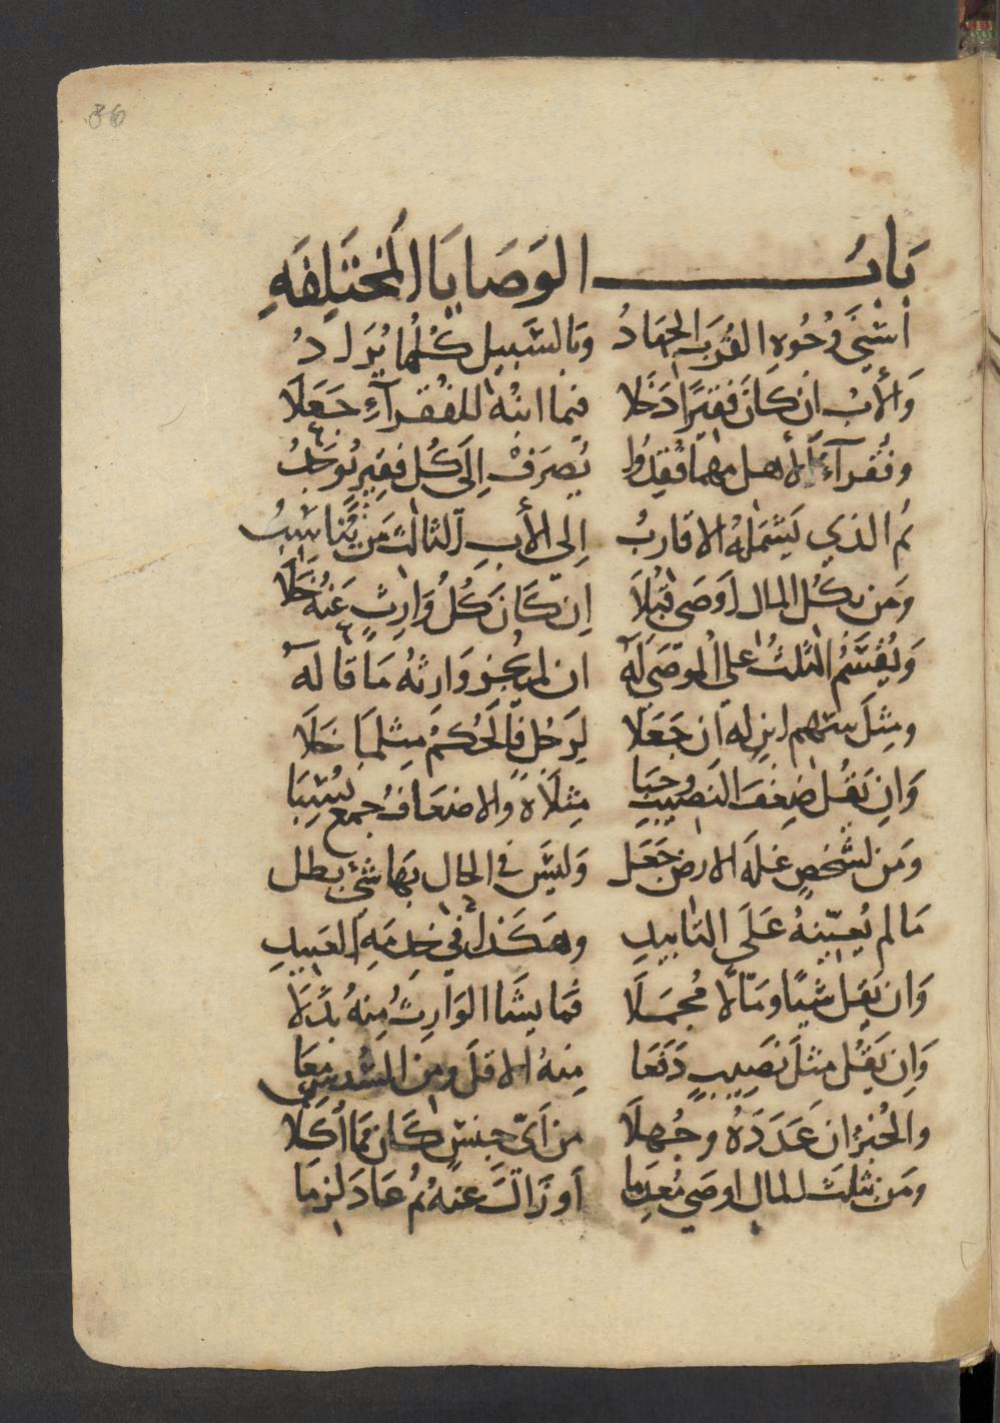 36
بَابُ الوَصَايَا المُختَلِفَهِ
أسْنَي وُجُوهِ القُرَبِ الجِهَادُ وَبالسَّبيلِ كُلُّهَا يُرَادُ
وَالأبُ ان كَانَ فَقيرًا دَخَلا فيما ابنُهُ للفُقرآءِ جَعَلَا
وفُقرآءُ الأهل مهمَا فُقِدُوا يُصرَفْ إِلَى كُل فقيرٍ يُوجَدُ
ثم الذي يَشمَلهُ الاقاربُ إلى الأبِ الثالث مَن يُنَاسِبُ
وَمَن بكُل المال أوصَى قُبِلَا اِن كَانَ كُلُّ وَارِثٍ عَنهُ خَلَا
وَيُقسَمُ الثلثُ على المُوصَى لَه ان لم يُجِز وَارثهُ مَا قاله
ومِثلَ سَهم ابنٍ له ان جَعَلا لِرَجُل فالحُكمُ مِثلمَا خَلَا
وَاِن يَقُل ضِعفَ النَصيبِ وجَبَا مِثلَاهُ والاضعَافُ جمع نُسِبَا
وَمَن لشَخصٍ غلةَ الارض جَعَل وَليسَ في الحال بِهَا شئ بطل
مَا لم يُعيّنهُ عَلَى التابيدِ وهَكَذا في خِدمَةِ العَبيدِ
وَان يَقل شيًا ومَالًا مُجمَلَا فمَا يشَا الوَارِثُ مِنهُ بَذَلَا
وَاِن يَقُل مِثلَ نَصِيبٍ دَفَعَا مِنهُ الاقلَ ومن السُدسِ مَعَا
والخُبزُ ان عَدَدَهُ وجُهلَا من اَيّ جنسٍ كَان مما أكَلَا
ومَن بثلثِ المال اوصَي مُعدِما أو زَالَ عنهُ ثُم عَادَ لزمَا